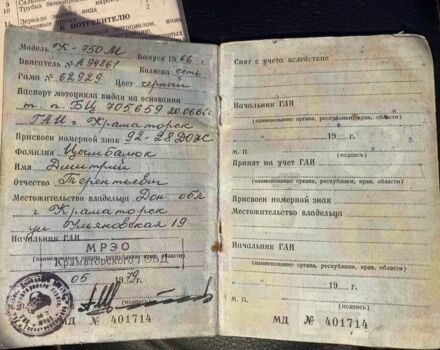 Сальн
Трубка бензопровод
Зеркало заднего вида
К ПОТРЕБИТЕЛЮ
Модель "К-750М" Выпуск 1966 г.
Двигатель № А94861 Коляска есть
Рама № 62929 Цвет черный
Паспорт мотоцикла выдан на основании
т. п БЦ 705659 20.06.66г
ГАИ г. Краматорск
Присвоен номерной знак 92-28 ДОЖ
Фамилия Цымбалюк
Имя Дмитрий
Отчество Терентьевич
Местожительство владельца Дон обл
г Краматорск
ул Ульяновская 19
Начальник ГАИ
МРЭО
(наименование органа, республики, края, области)
Краматорского ГОВД
05 1979 г.
(подпись)
МД № 401714
Снят с учета вследствие
Начальник ГАИ
(наименование органа, республики, края, области)
" " 19 г.
М. П. (подпись)
Принят на учет ГАИ
(наименование органа, республики, края, области)
Присвоен номерной знак
Местожительство владельца
Начальник ГАИ
(наименование органа, республики, края, области)
" " 19 г.
М. П. (подпись)
МД № 401714